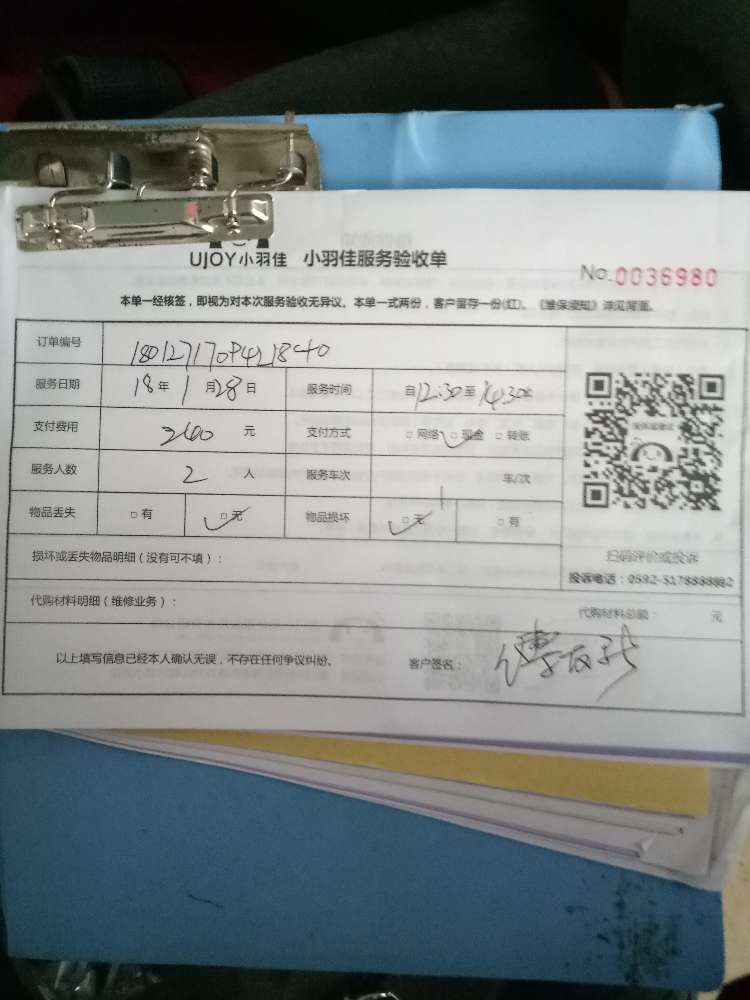 UJOY小羽佳 小羽佳服务验收单
No.0036980
本单一经核签，即视为对本次服务验收无异议。本单一式两份，客户留存一份(红)。《维保须知》详见背面。
订单编号
服务日期 18年1月28日 服务时间 自12:30至14:30
支付费用 元 支付方式 □网络 □现金 □转账
服务人数 2 人 服务车次 车/次
物品丢失 □有 □无 物品损坏 □无 □有
损坏或丢失物品明细（没有可不填）：
扫码评价或投诉
投诉电话：0592-5178888
代购材料明细（维修业务）：
代购材料总额： 元
以上填写信息已经本人确认无误，不存在任何争议纠纷。 客户签名：